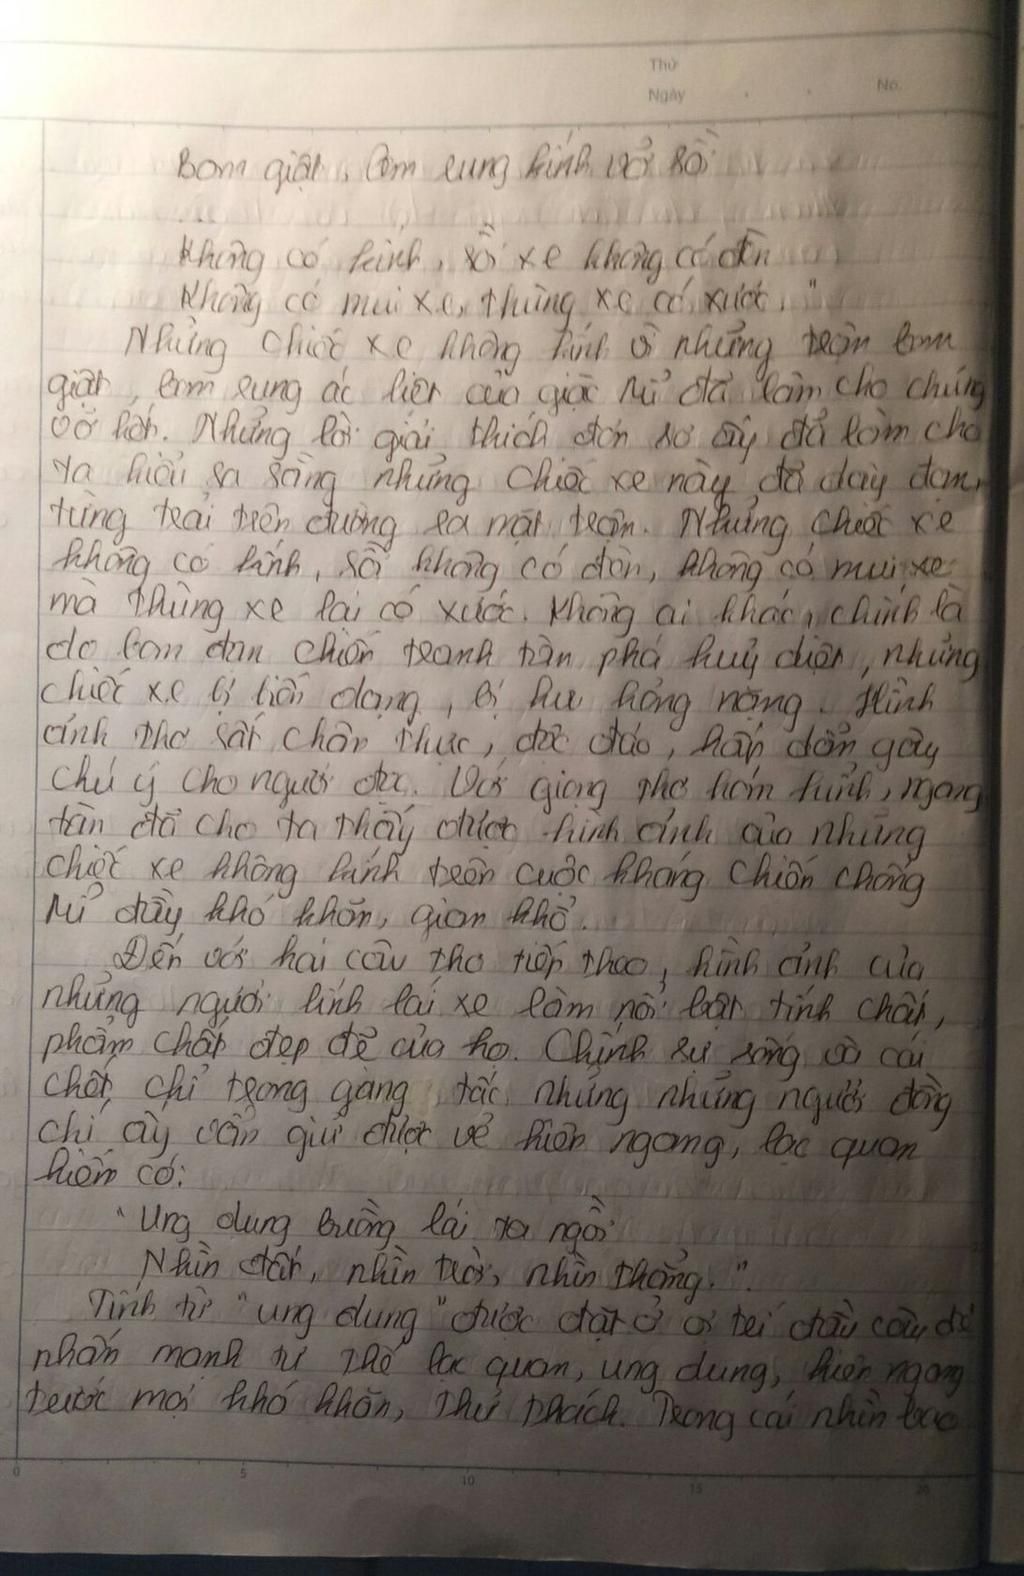 Thứ
Ngày
No.
Bom giật, bom rung kính vỡ rồi
...
Không có kính, rồi xe không có đèn
Không có mui xe, thùng xe có xước. "
Những chiếc xe không kính vì những trận bom
giật, bom rung ác liệt của giặc Mĩ đã làm cho chúng
vỡ hết. Những lời giải thích đơn sơ ấy đã làm cho
ta hiểu ra rằng những chiếc xe này đã dày dạn,
từng trải trên đường ra mặt trận. Những chiếc xe
không có kính, rồi không có đèn, không có mui xe
mà thùng xe lại có xước. Không ai khác, chính là
do bom đạn chiến tranh tàn phá huỷ diệt, những
chiếc xe bị biến dạng, bị hư hỏng nặng. Hình
ảnh thơ rất chân thực, độc đáo, hấp dẫn gây
chú ý cho người đọc. Với giọng thơ hóm hỉnh, ngang
tàn đã cho ta thấy được hình ảnh của những
chiếc xe không kính trên cuộc kháng chiến chống
Mĩ đầy khó khăn, gian khổ.
Đến với hai câu thơ tiếp theo, hình ảnh của
những người lính lái xe làm nổi bật tính chất,
phẩm chất đẹp đẽ của họ. Chính sự sống và cái
chết chỉ trong gang tấc nhưng những người đồng
chí ấy vẫn giữ được vẻ hiên ngang, lạc quan
hiếm có:
" Ung dung buồng lái ta ngồi
Nhìn đất, nhìn trời, nhìn thẳng. ".
Tính từ " ung dung " được đặt ở vị trí đầu câu để
nhấn mạnh tư thế lạc quan, ung dung, hiên ngang
trước mọi khó khăn, thử thách. Trong cái nhìn bao
0 5 10 15 20